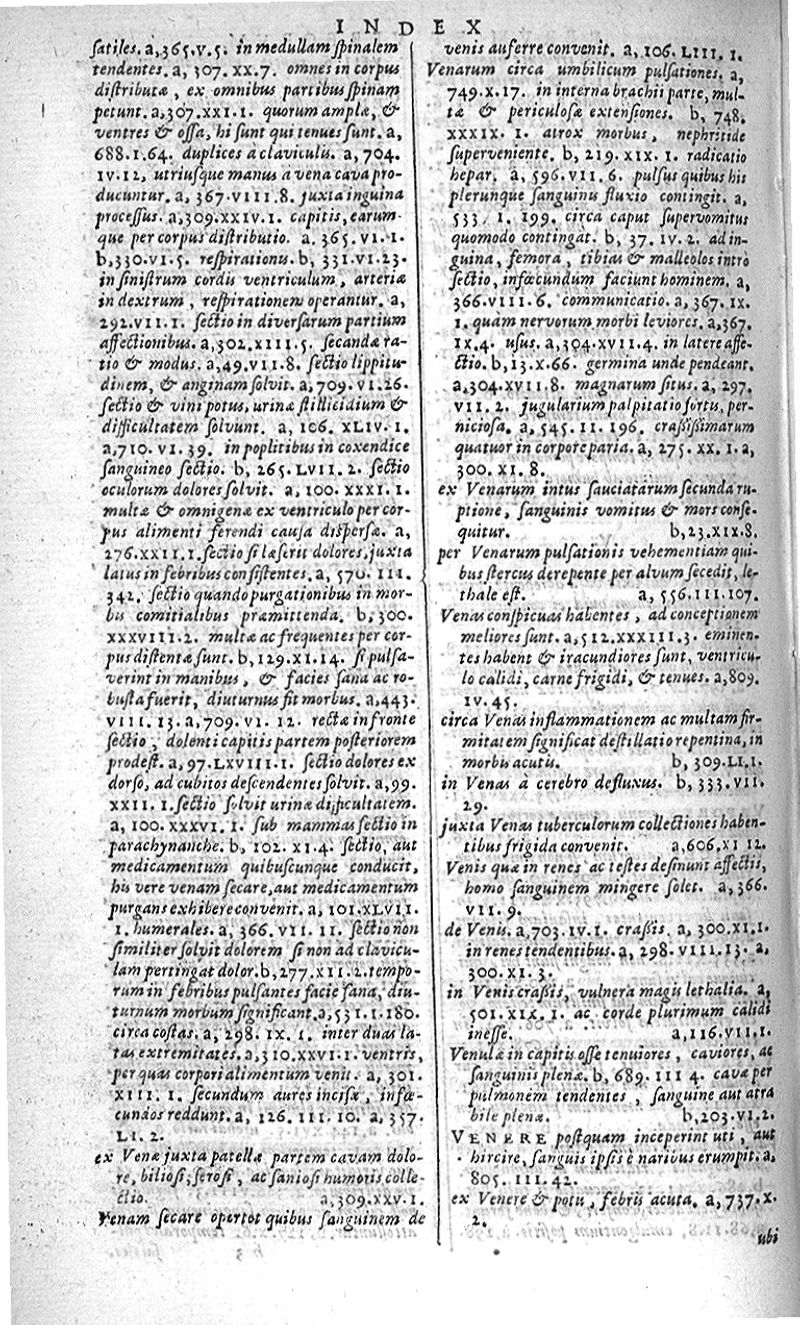 INDEX
ſatiles. a, 365. V. 5. in medullam ſpinalem
tendentes. a, 307. XX. 7. omnes in corpus
diſtributæ, ex omnibus partibus ſpinam
petunt. a, 307. XXI. 1. quorum amplæ, &
ventres & oſſa, hi ſunt qui tenues ſunt. a,
688. 1. 64. duplices à claviculis. a, 704.
IV. 12, utriuſque manus à vena cava pro-
ducuntur. a, 367. VIII. 8. juxta inguina
proceſſus. a, 309. XXIV. 1. capitis, earum-
que per corpus diſtributio. a. 365. VI. 1.
b, 330. VI. 5. reſpirationis. b, 331. VI. 23.
in ſiniſtrum cordis ventriculum, arteriæ
in dextrum, reſpirationem operantur. a,
292. VII. 1. ſectio in diverſarum partium
affectionibus. a, 302. XIII. 5. ſecandæ ra-
tio & modus. a, 49. VII. 8. ſectio lippitu-
dinem, & anginam ſolvit. a, 709. VI. 26.
ſectio & vini potus, urinæ ſtillicidium &
difficultatem ſolvunt. a, 106. XLIV. 1.
a, 710. VI. 39. in poplitibus in coxendice
ſanguineo ſectio. b, 265. LVII. 2. ſectio
oculorum dolores ſolvit. a, 100. XXXI. 1.
multæ & omnigenæ ex ventriculo per cor-
pus alimenti ferendi cauſa diſperſæ. a,
276. XXII. 1. ſectio ſi laſerit dolores, juxta
latus in febribus conſiſtentes. a, 570. III.
342. ſectio quando purgationibus in mor-
bis comitialibus præmittenda. b, 300.
XXXVIII. 2. multæ ac frequentes per cor-
pus diſtentæ ſunt. b, 129. XI. 14. ſi pulſa-
verint in manibus, & facies ſana ac ro-
buſta fuerit, diuturnus fit morbus. a, 443.
VIII. 13. a, 709. VI. 12. rectæ in fronte
ſectio, dolenti capitis partem poſteriorem
prodeſt. a, 97. LXVIII. 1. ſectio dolores ex
dorſo, ad cubitos deſcendentes ſolvit. a, 99.
XXII. 1. ſectio ſolvit urinæ difficultatem.
a, 100. XXXVI. 1. ſub mammas ſectio in
parachynanche. b, 102. XI. 4. ſectio, aut
medicamentum quibuſcunque conducit,
his vere venam ſecare, aut medicamentum
purgans exhibere convenit. a, 101. XLVII.
1. humerales. a, 366. VII. 11. ſectio non
ſimiliter ſolvit dolorem ſi non ad clavicu-
lam pertingat dolor. b, 277. XII. 2. tempo-
rum in febribus pulſantes facie ſana, diu-
turnum morbum ſignificant. a, 531. 1. 180.
circa coſtas. a, 298. IX. 1. inter duas la-
tas extremitates. a, 310. XXVI. 1. ventris,
per quas corpori alimentum venit. a, 301.
XIII. 1. ſecundum aures inciſæ, infœ-
cundos reddunt. a, 126. III. 10. a, 357.
LI. 2.
ex Venæ juxta patellæ partem cavam dolo-
re, bilioſi, ſeroſi, ac ſanioſi humoris colle-
ctio. a, 309. XXV. 1.
Venam ſecare opertot quibus ſanguinem de
venis auferre convenit. a, 106. LIII. 1.
Venarum circa umbilicum pulſationes. a,
749. X. 17. in interna brachii parte, mul-
tæ & periculoſæ extenſiones. b, 748.
XXXIX. 1. atrox morbus, nephritide
ſuperveniente. b, 219. XIX. 1. radicatio
hepar. a, 596. VII. 6. pulſus quibus his
plerunque ſanguinis fluxio contingit. a,
533. 1. 199. circa caput ſupervomitus
quomodo contingat. b, 37. IV. 2. ad in-
guina, femora, tibias & malleolos intrò
ſectio, infœcundum faciunt hominem. a,
366. VIII. 6. communicatio. a, 367. IX.
1. quàm nervorum morbi leviores. a, 367.
IX. 4. uſus. a, 304. XVII. 4. in latere affe-
ctio. b, 13. X. 66. germina unde pendeant.
a, 304. XVII. 8. magnarum ſitus. a, 297.
VII. 2. jugularium palpitatio fortis, per-
nicioſa. a, 545. 11. 196. craſſiſſimarum
quatuor in corpore paria. a, 275. XX. 1. a,
300. XI. 8.
ex Venarum intus ſauciatarum ſecunda ru-
ptione, ſanguinis vomitus & mors conſe-
quitur. b, 23. XIX. 8.
per Venarum pulſationis vehementiam qui-
bus ſtercus derepente per alvum ſecedit, le-
thale eſt. a, 556. III. 107.
Venas conſpicuas habentes, ad conceptionem
meliores ſunt. a, 512. XXXIII. 3. eminen-
tes habent & iracundiores ſunt, ventricu-
lo calidi, carne frigidi, & tenues. a, 809.
IV. 45.
circa Venas inflammationem ac multam fir-
mitatem ſignificat deſtillatio repentina, in
morbis acutis. b, 309. LI. 1.
in Venas à cerebro defluxus. b, 333. VII.
29.
juxta Venas tuberculorum collectiones haben-
tibus frigida convenit. a, 606. XI 12.
Venis quæ in renes ac teſtes deſinunt affectis,
homo ſanguinem mingere ſolet. a, 366.
VII. 9.
de Venis. a, 703. IV. 1. craſſis. a, 300. XI. 1.
in renes tendentibus. a, 298. VIII. 13. a,
300. XI. 3.
in Venis craſſis, vulnera magis lethalia. a,
501. XIX. 1. ac corde plurimum calidi
ineſſe. a, 116. VII. 1.
Venulæ in capitis oſſe tenuiores, caviores, ac
ſanguinis plenæ. b, 689. III 4. cavæ per
pulmonem tendentes, ſanguine aut atra
bile plenæ. b, 203. VI. 2.
VENERE poſtquam inceperint uti, aut
hircire, ſanguis ipſis è naribus erumpit. a,
805. III. 42.
ex Venere & potu, febris acuta. a, 737. X.
2.
ubi